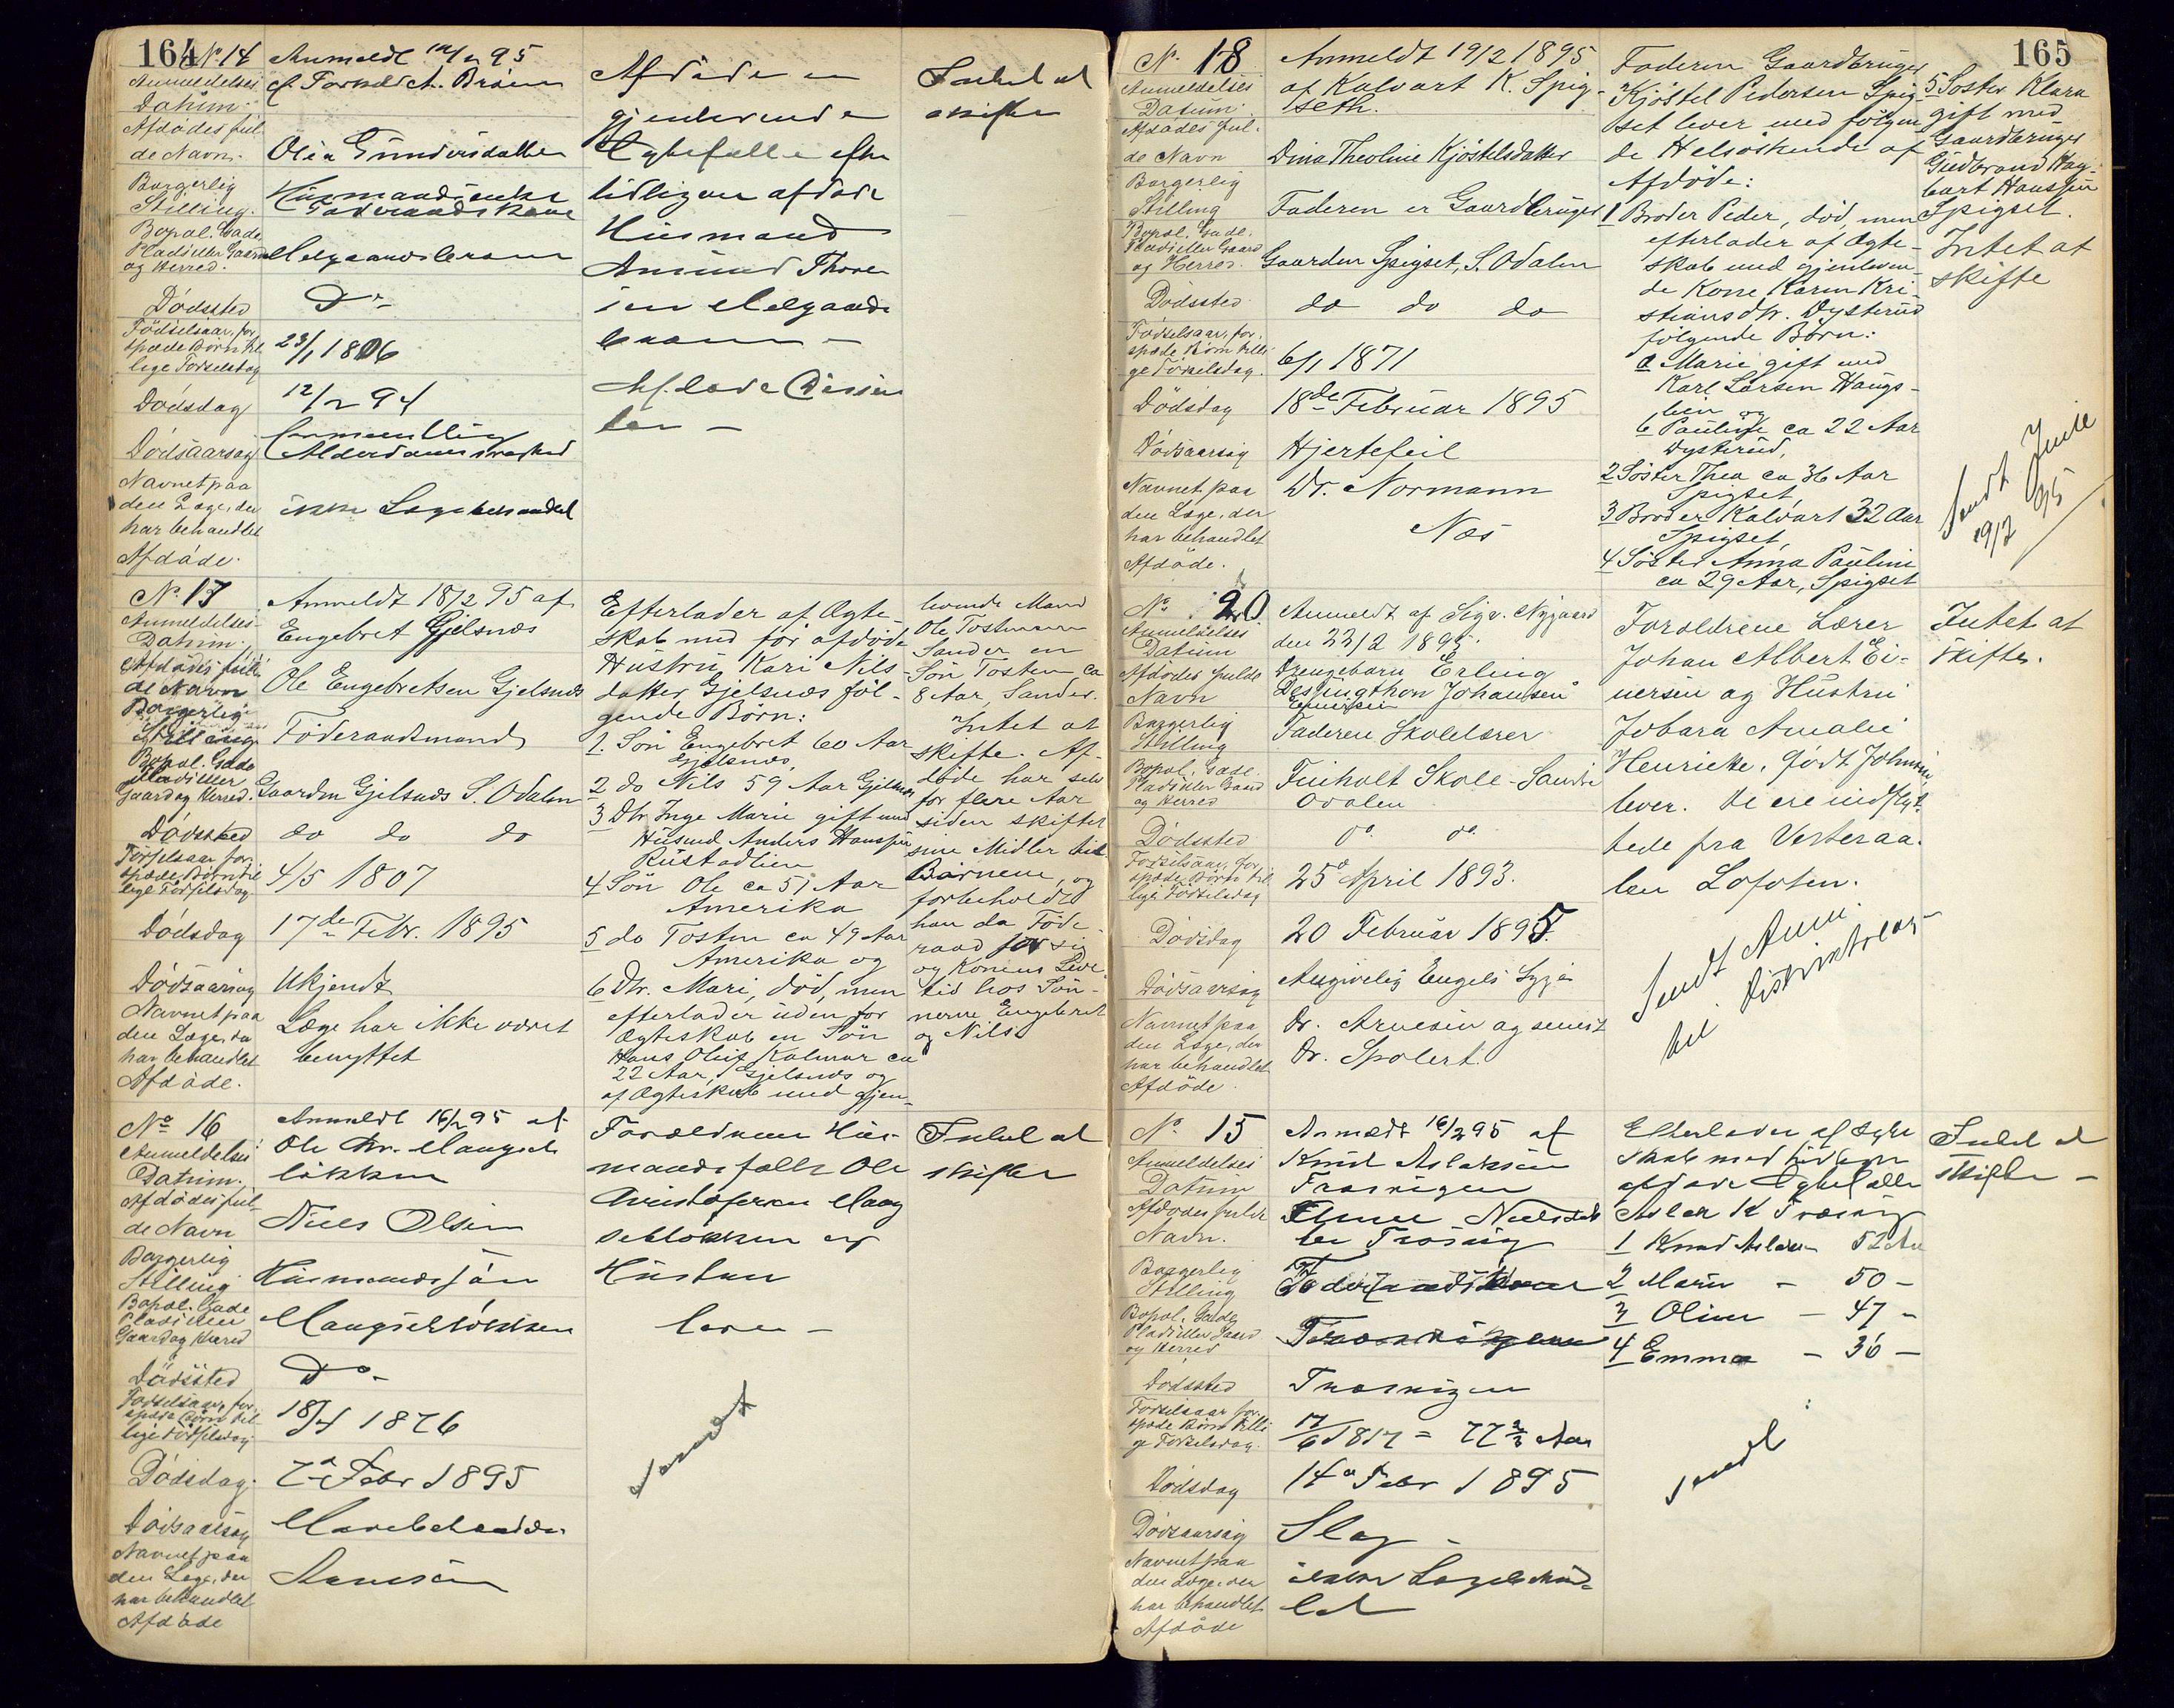 164
No 14
Anmeldt 14/2 95
Anmeldelses
Datum.
af Forhold A. Bråen
Afdödes ful-
de Navn.
Olea Gundersdatter
Borgerlig
Stilling.
Husmandsenke
Födraadskone
Bopæl. Gade
Plads eller Gaard
og Herred.
Dödssted
Do
Födselsaar, for
spæde Börn til
lige Födselsdag
23/1 1806
Dödsdag
12/2 94
Dödsaarsag
Alderdomssvaghed
Navnet paa
den Læge, der
har behandlet
Afdöde.
ikke Lægebehandlet
Afdöde er
gjenlevende
Ægtefælle efter
tidligere afdöde
Husmand
Amund Thore
sen
Intet at
skifte
No. 17
Anmeldelses-
Datum.
Anmeldt 18/2 95 af
Engebret Gjelsnæs
Afdödes ful-
de Navn
Ole Engebretsen Gjelsnæs
Borgerlig
Stilling
Föderaadsmand
Bopæl. Gade
Plads eller
Gaard og Herred.
Gaarden Gjelsnæs S. Odalen
Dödssted
do do do
Födselsaar, for
spæde Börn til
lige Födselsdag
4/5 1807
Dödsdag
17de Febr. 1895
Dödsaarsag
Ukjendt
Navnet paa
den Læge, der
har behandlet
Afdöde.
Læge har ikke været
benyttet
Efterlader af Ægte-
skab med för afdöde
Hustru Kari Nils-
datter Gjelsnæs föl-
gende Börn:
1. Sön Engebret 60 Aar
Gjelsnæs,
2 do Nils 59 Aar Gjelsnæs
3 Dtr. Inge Marie gift med
Husmd Anders Hanssen
Rustadlien
4 Sön Ole ca 51 Aar
Amerika
5 do Tosten ca 49 Aar
Amerika og
6 Dtr. Mari, död, men
efterlader uden for
Ægteskab en Sön
Hans Oluf Kalmar ca
22 Aar, Gjelsnæs og
af Ægteskab med gjen-
levende Mand
Ole Tostensen
Sander en
Sön Tosten ca
8 Aar, Sander.
Intet at
skifte. Af-
döde har selv
for flere Aar
siden skiftet
sine Midler til
Börnene, og
forbeholdt
han da Föde
raad for sig
og Konens Leve
tid hos Sön-
nerne Engebret
og Nils
No 16
Anmeldelses
Datum.
Anmeldt 16/2 95 af
Ole Kr. Mangsek
lökken
Afdödes ful-
de Navn
Niels Olsen
Borgerlig
Stilling
Husmandssön
Bopæl. Gade
Plads eller
Gaard og Herred
Mangseklökken
Dödssted
Do.
Födselsaar, for
spæde Börn til
lige Födselsdag
18/4 1876
Dödsdag.
7de Febr 1895
Dödsaarsag
Navnet paa
den Læge, der
har behandlet
Afdöde
Arnesen
Forældrene Hus-
mandsfolk Ole
Christofersen Mang
seklökken og
Hustru
lever –
Sendt
165
No. 18
Anmeldelses
Datum.
Anmeldt 19/2 1895
af Kalvart K. Spig-
seth.
Afdödes ful-
de Navn
Dina Theoline Kjöstelsdatter
Borgerlig
Stilling
Faderen er Gaardbruger
Bopæl. Gade.
Plads eller Gaard
og Herred.
Gaarden Spigset, S. Odalen
Dödssted
do do do
Födselsaar, for
spæde Börn tilli
ge Födselsdag.
6/1 1871
Dödsdag
18de Februar 1895
Dödsaarsag
Hjertefeil
Navnet paa
den Læge, der
har behandlet
Afdöde.
Dr. Normann
Næs
Faderen Gaardbruger
Kjöstel Pedersen Spig-
set lever med fölgen-
de Helsöskende af
Afdöde:
1 Broder Peder, död, men
efterlader af Ægte-
skab med gjenleven-
de Kone Karen Kri-
stiansdtr. Dysterud
fölgende Börn:
a Marie gift med
Karl Larsen Haugs-
lien og
b Pauline ca 22 Aar
Dysterud,
2 Söster Thea ca 36 Aar
Spigset,
3 Broder Kalvart 32 Aar
Spigset,
4 Söster Anna Pauline
ca 29 Aar, Spigset
5 Söster Klara
gift med
Gaardbruger
Gudbrand Hag-
bart Hanssen
Spigset.
Intet at
skifte
Sendt
19/2 95
No 20
Anmeldelses
Datum
Anmeldt af Sigv. Nygaard
den 22/2 1895.
Afdödes fulde
Navn
Drengebarn Erling
Johansen
Einersen
Borgerlig
Stilling
Faderen Skolelærer
Bopæl. Gade.
Plads eller Gaard
og Herred
Finholt Skole – Söndre
Odalen
Dödssted
do do.
Födselsaar, for
spæde Börn til
lige Födselsdag
25de April 1893.
Dödsdag
20 Februar 1895.
Dödsaarsag
Angivelig Engels Syge
Navnet paa
den Læge, der
har behandlet
Afdöde.
Dr. Arnesen og senest
Dr. Spolert
Forældrene Lærer
Johan Albert Ei-
nersen og Hustru
Jobara Amalie
Henrikke, født Johnsen
lever. De ere indflyt-
tede fra Vesteraa-
len Lofoten.
Intet at
skifte.
Sendt Anm.
til Distriktslæg
No. 15
Anmeldelses
Datum
Anmeldt 16/2 95 af
Knud Aslaksen
Træsnigen
Afdödes fulde
Navn.
Borgerlig
Stilling
Bopæl. Gade
Plads eller Gaard
og Herred
Dödssted
Træsnigen
Födselsaar, for
spæde Börn tilli
ge Födselsdag.
17/6 1817 = 77 2/3 Aar
Dödsdag
14de Febr 1895
Dödsaarsag
Slag –
Navnet paa
den Læge, der
har behandlet
Afdöde
ikke Lægebehand-
let
Efterlader af Ægte
skab med tidligere
afdöde Ægtefælle
Aslak K Træsnig
1 Knud Aslaksen 52 Aar
2 Maren – 50 –
3 Oline – 47 –
4 Emma – 36 –
Intet at
skifte –
Sendt